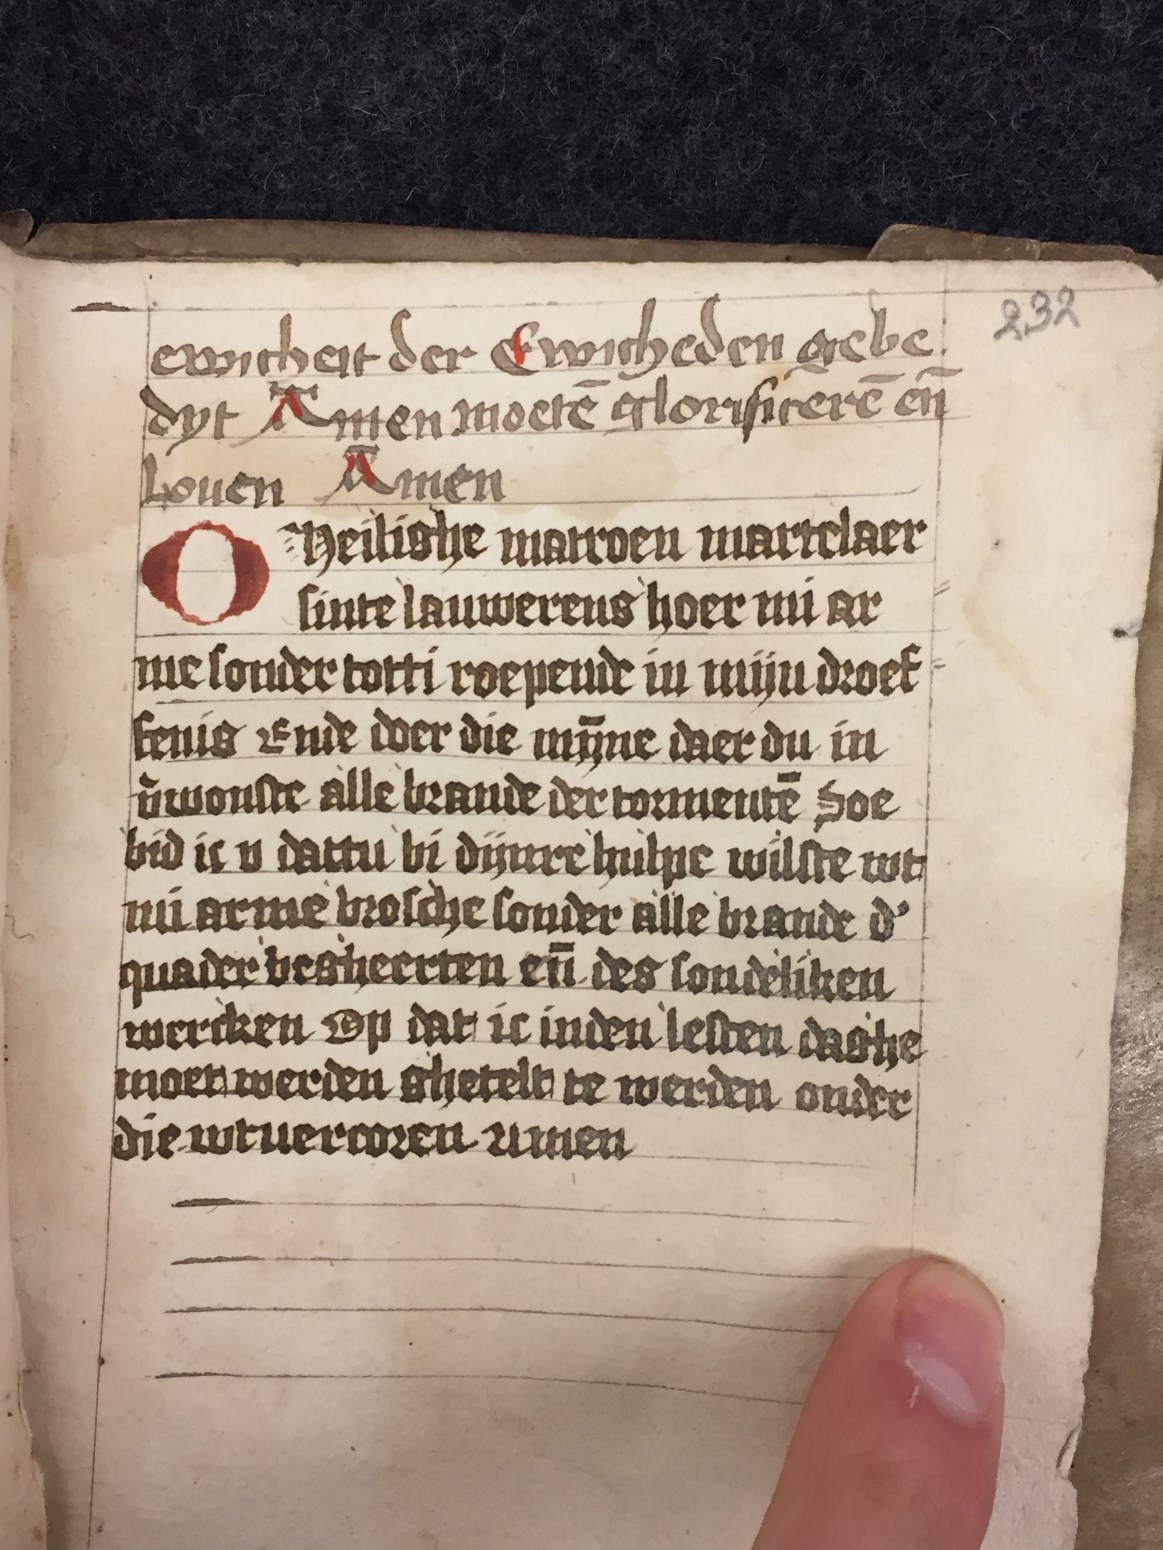 232
ewicheit der Ewicheden gebe
dyt Amen moetē glorificerē eñ
Louen Amen
O Heilighe matroen martelaer
sinte lauwerens hoer mi ar
me sonder totti roepende in mijn droef
fenis Ende doer die mȳne daer du in
v̄wonste alle brande der tormentē Soe
bid ic v dattu bi dijnre hulpe wilste wt
mi arme brosche sonder alle brande d'
quader begheerten eñ des sondeliken
wercken Op dat ic inden lesten daghe
moet werden ghetelt te werden onder
die wtuercoren Amen